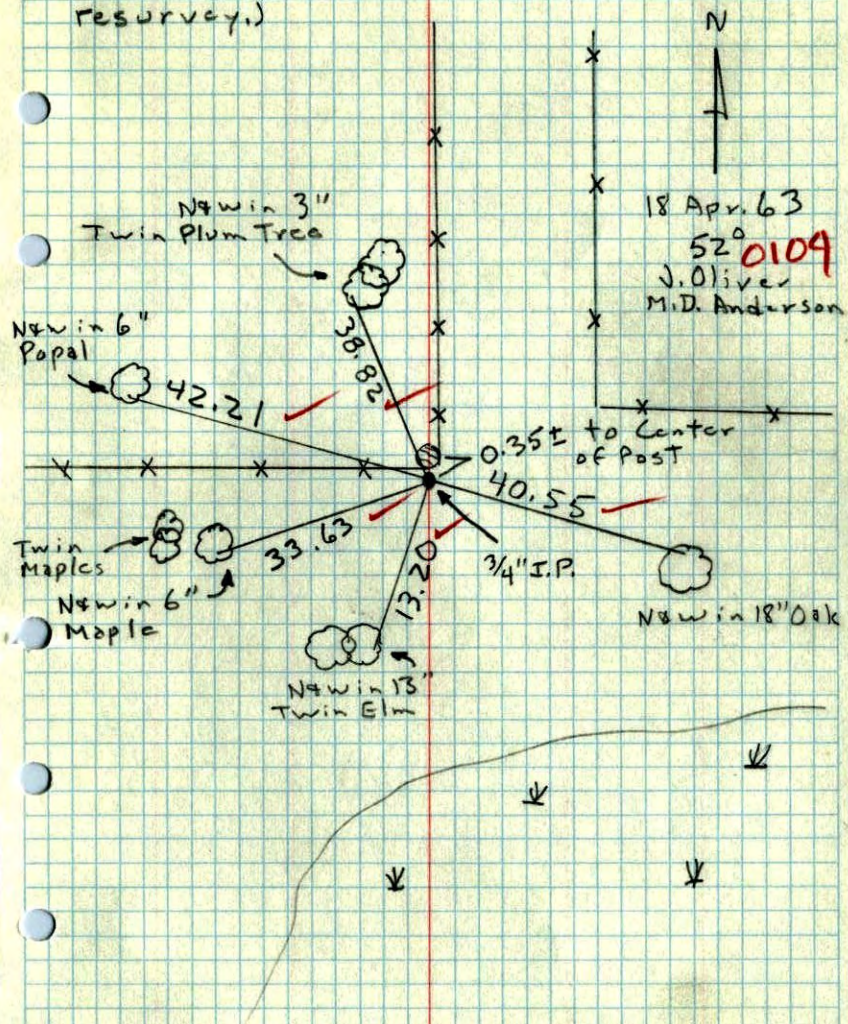 resurvey.)
N
18 Apr. 63
52°
0104
J. Oliver
M.D. Anderson
N&W in 3"
Twin Plum Tree
N&W in 6"
Popal
42.21
38.82
0.35± to Center
of Post
40.55
33.63
13.20
3/4" I.P.
Twin
Maples
N&W in 6"
Maple
N&W in 18" Oak
N&W in 13"
Twin Elm